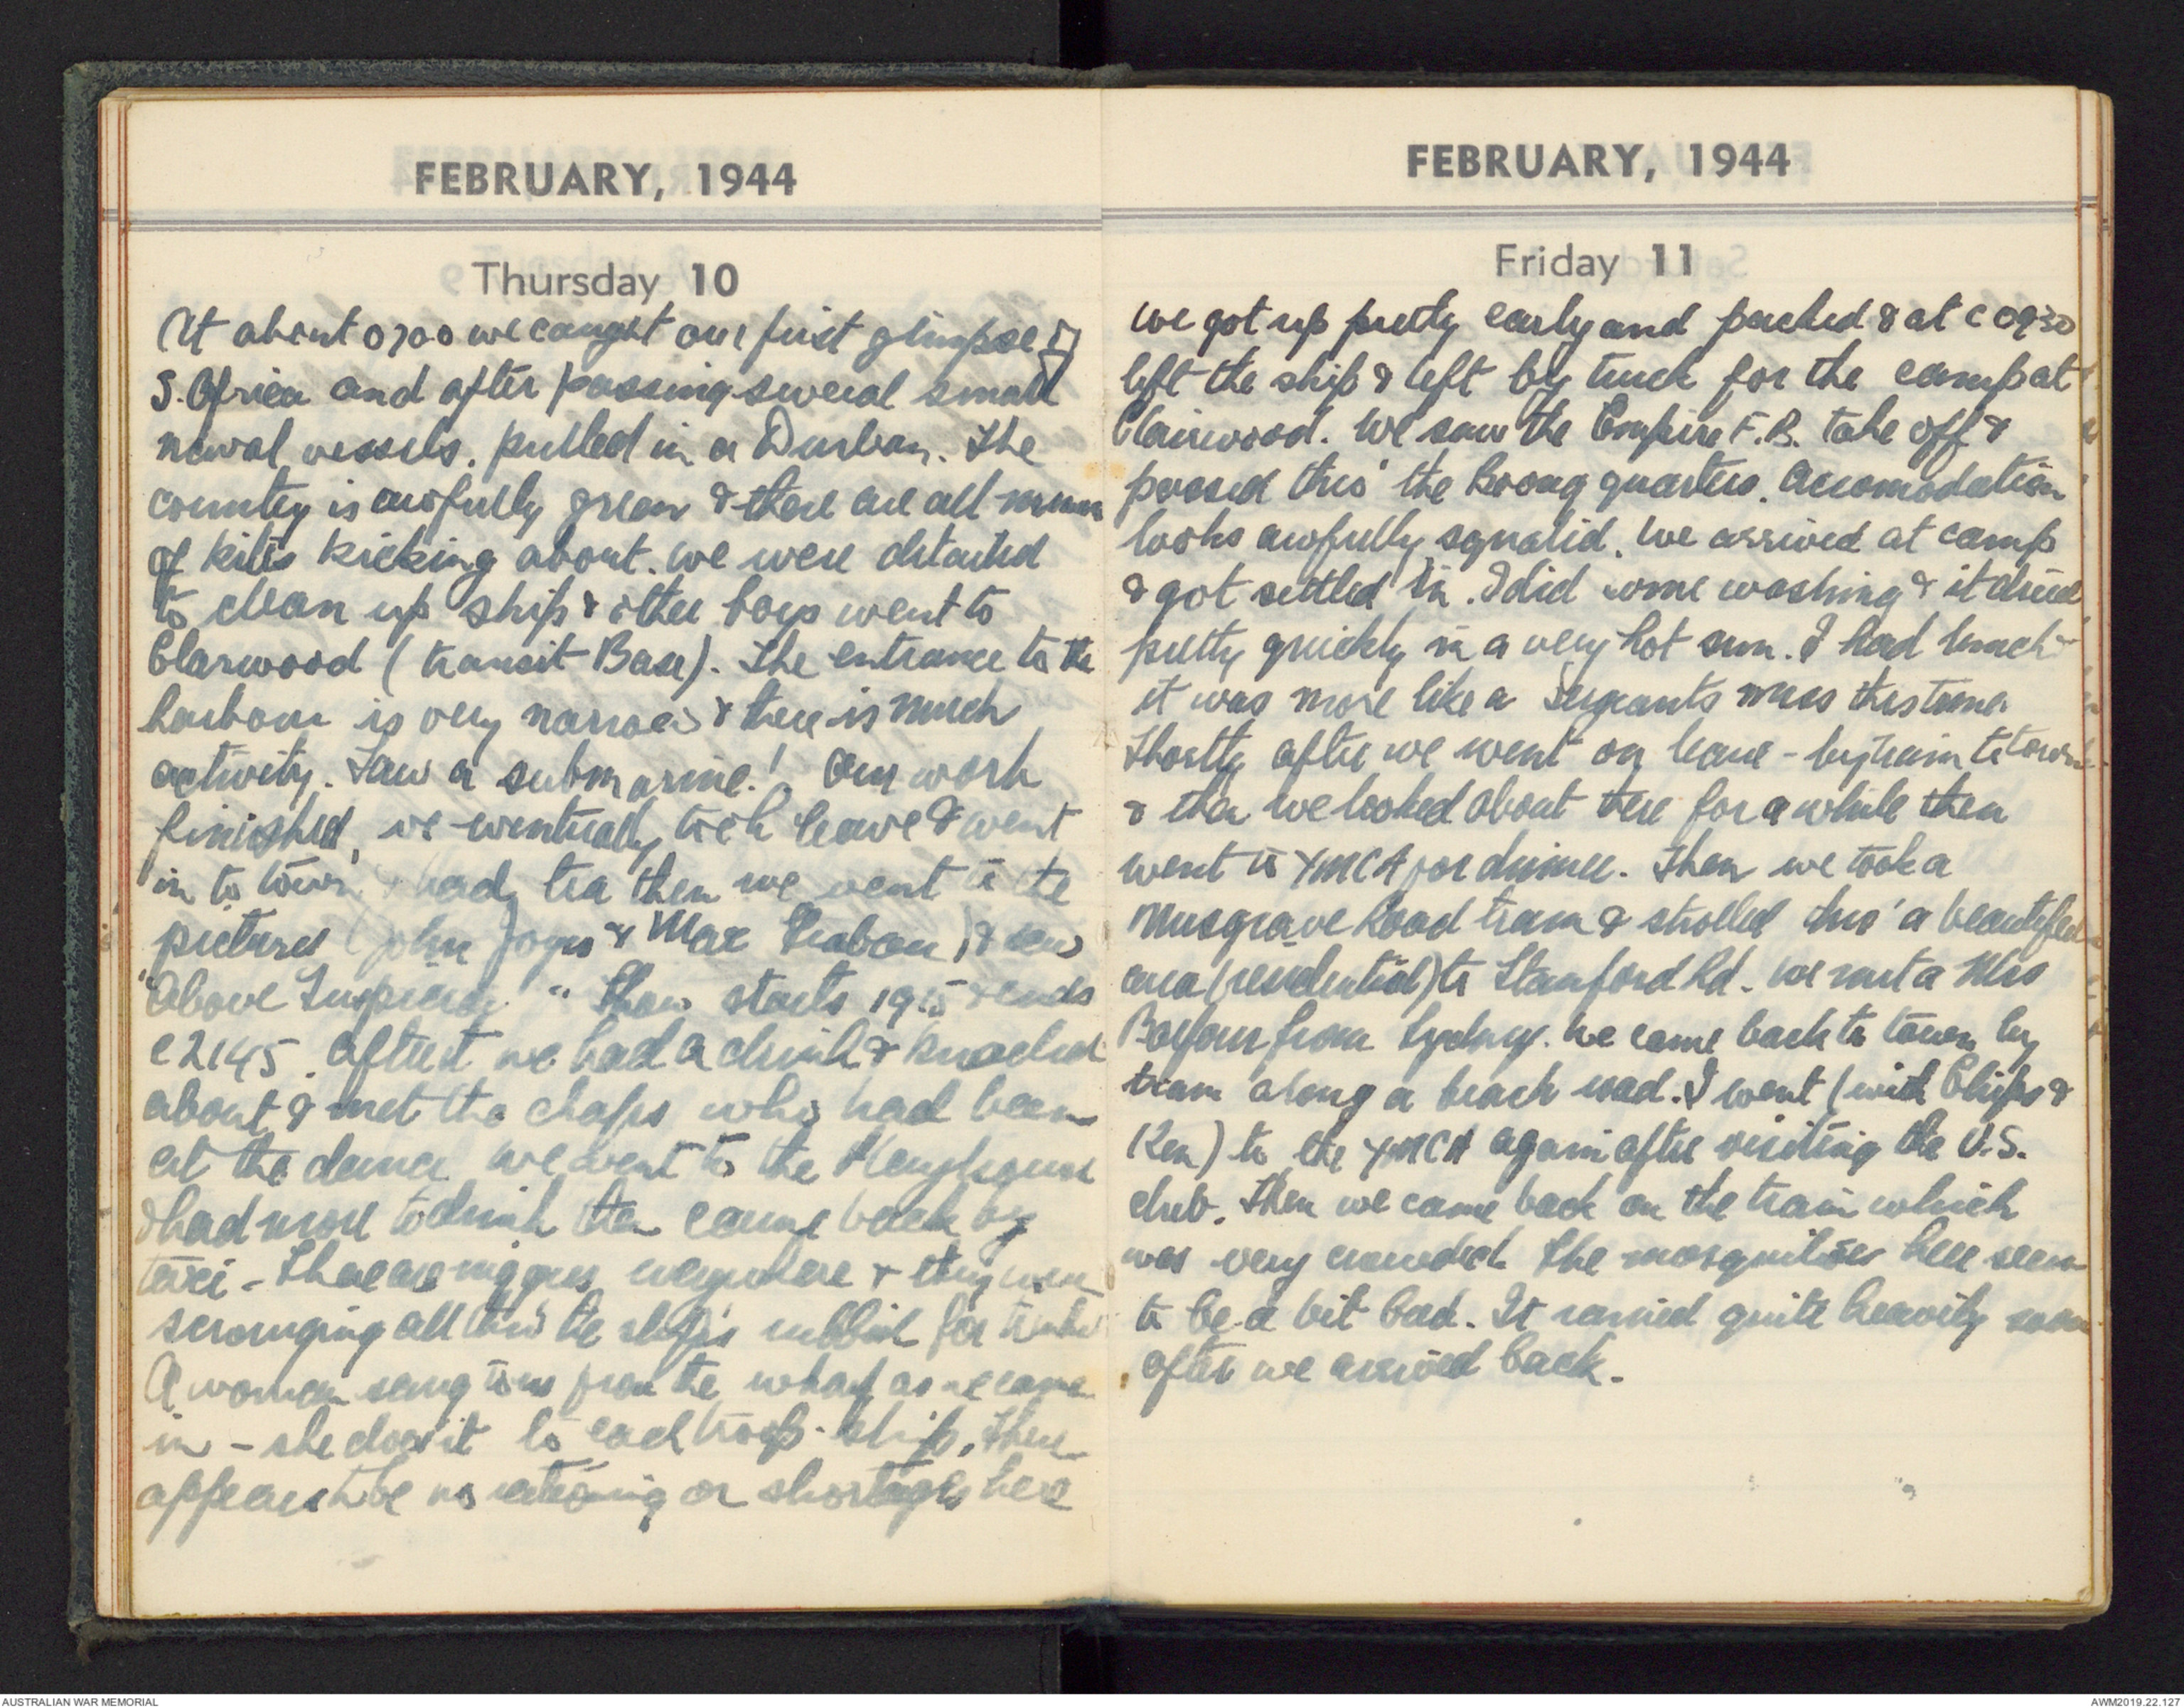 FEBRUARY, 1944
Thursday 10
At about 0700 we caught our first glimpse of
S. Africa and after passing several small
naval vessels, pulled in a Durban. The
country is awfully green & there are all
of kites kicking about. We were detailed
to clean up ship & other boys went to
Clarwood (transit Base). The entrance to the
harbour is very narrow & there is much
activity. Saw a submarine! Our work
finished, we eventually took leave & went
in to town & had tea then we went to the
pictures (John Joyes & Max) & saw
"Above Suspicion" Show starts 1915 & ends
c 2145. After it we had a drink & knocked
about & met the chaps who had been
at the dance we went to the
& had more to drink then came back by
taxi - There are niggers everywhere & they were
scrounging all thro' the ship's rubbish for
A woman sang to us from the wharf as we came
in - she does it to each troop-ship. There
appears to be no rationing or shortages here
FEBRUARY, 1944
Friday 11
We got up pretty early and packed & at c 0930
left the ship & left by truck for the camp at
Clairwood. We saw the Empire F.B. take off &
passed thro' the quarters. Accomodation
looks awfully squalid. We arrived at camp
& got settled in. I did some washing & it dried
pretty quickly in a very hot sun. I had lunch -
it was more like a sergeants mess this time
Shortly after we went on leave - by train to town
& then we looked about there for a while then
went to YMCA for dinner. Then we took a
Musgrave Road tram & strolled thro' a beautiful
area (residential) to Stamford Rd. We met a Mrs
Balfour from Sydney. We came back to town by
tram along a beach road. I went (with Chips &
Ken) to the YMCA again after visiting the V.S.
club. Then we came back on the train which
was very crowded. The mosquitoes here seem
to be a bit bad. It rained quite heavily soon
after we arrived back.
AUSTRALIAN WAR MEMORIAL
AWM2019.22.127